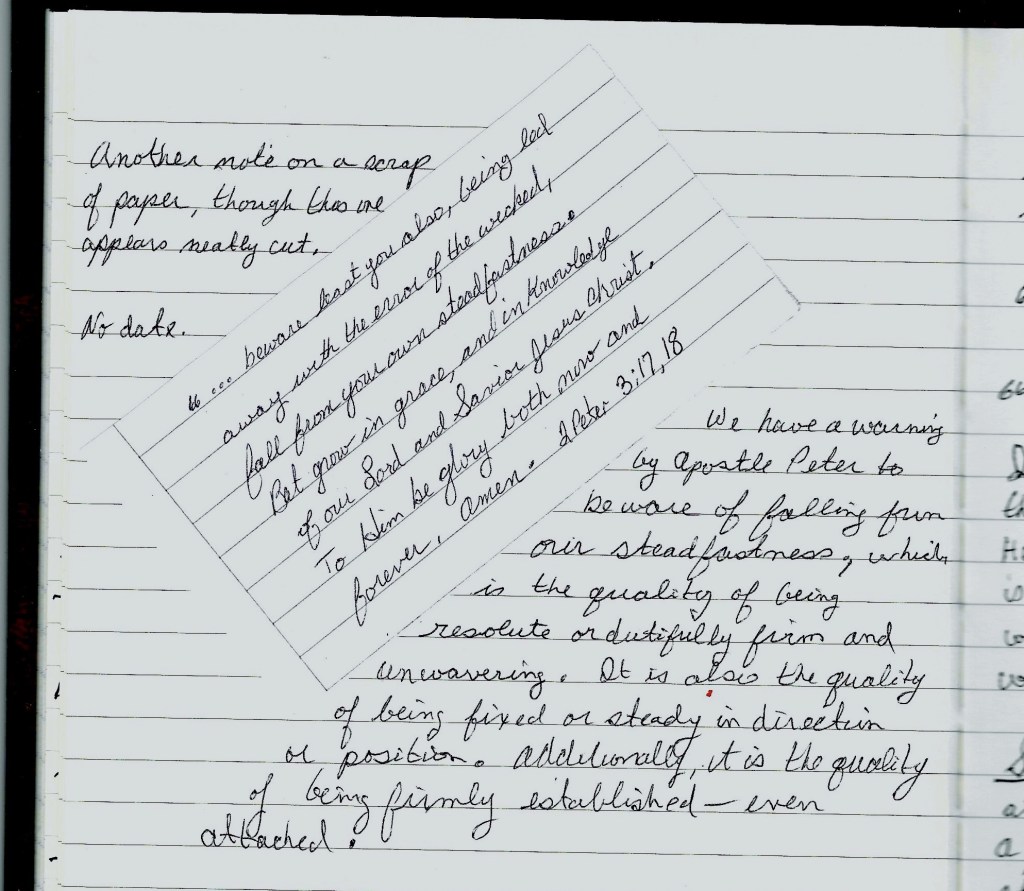 Another note on a scrap
of paper, though this one
appears neatly cut.
No date.
"... beware least you also, being led
away with the error of the wicked,
fall from your own steadfastness.
But grow in grace, and in knowledge
of our Lord and Savior Jesus Christ.
To Him be glory both now and
forever, amen. 2 Peter 3:17,18
We have a warning
by Apostle Peter to
beware of falling from
our steadfastness, which
is the quality of being
resolute or dutifully firm and
unwavering. It is also the quality
of being fixed or steady in direction
or position. Additionally, it is the quality
of being firmly established — even
attached.